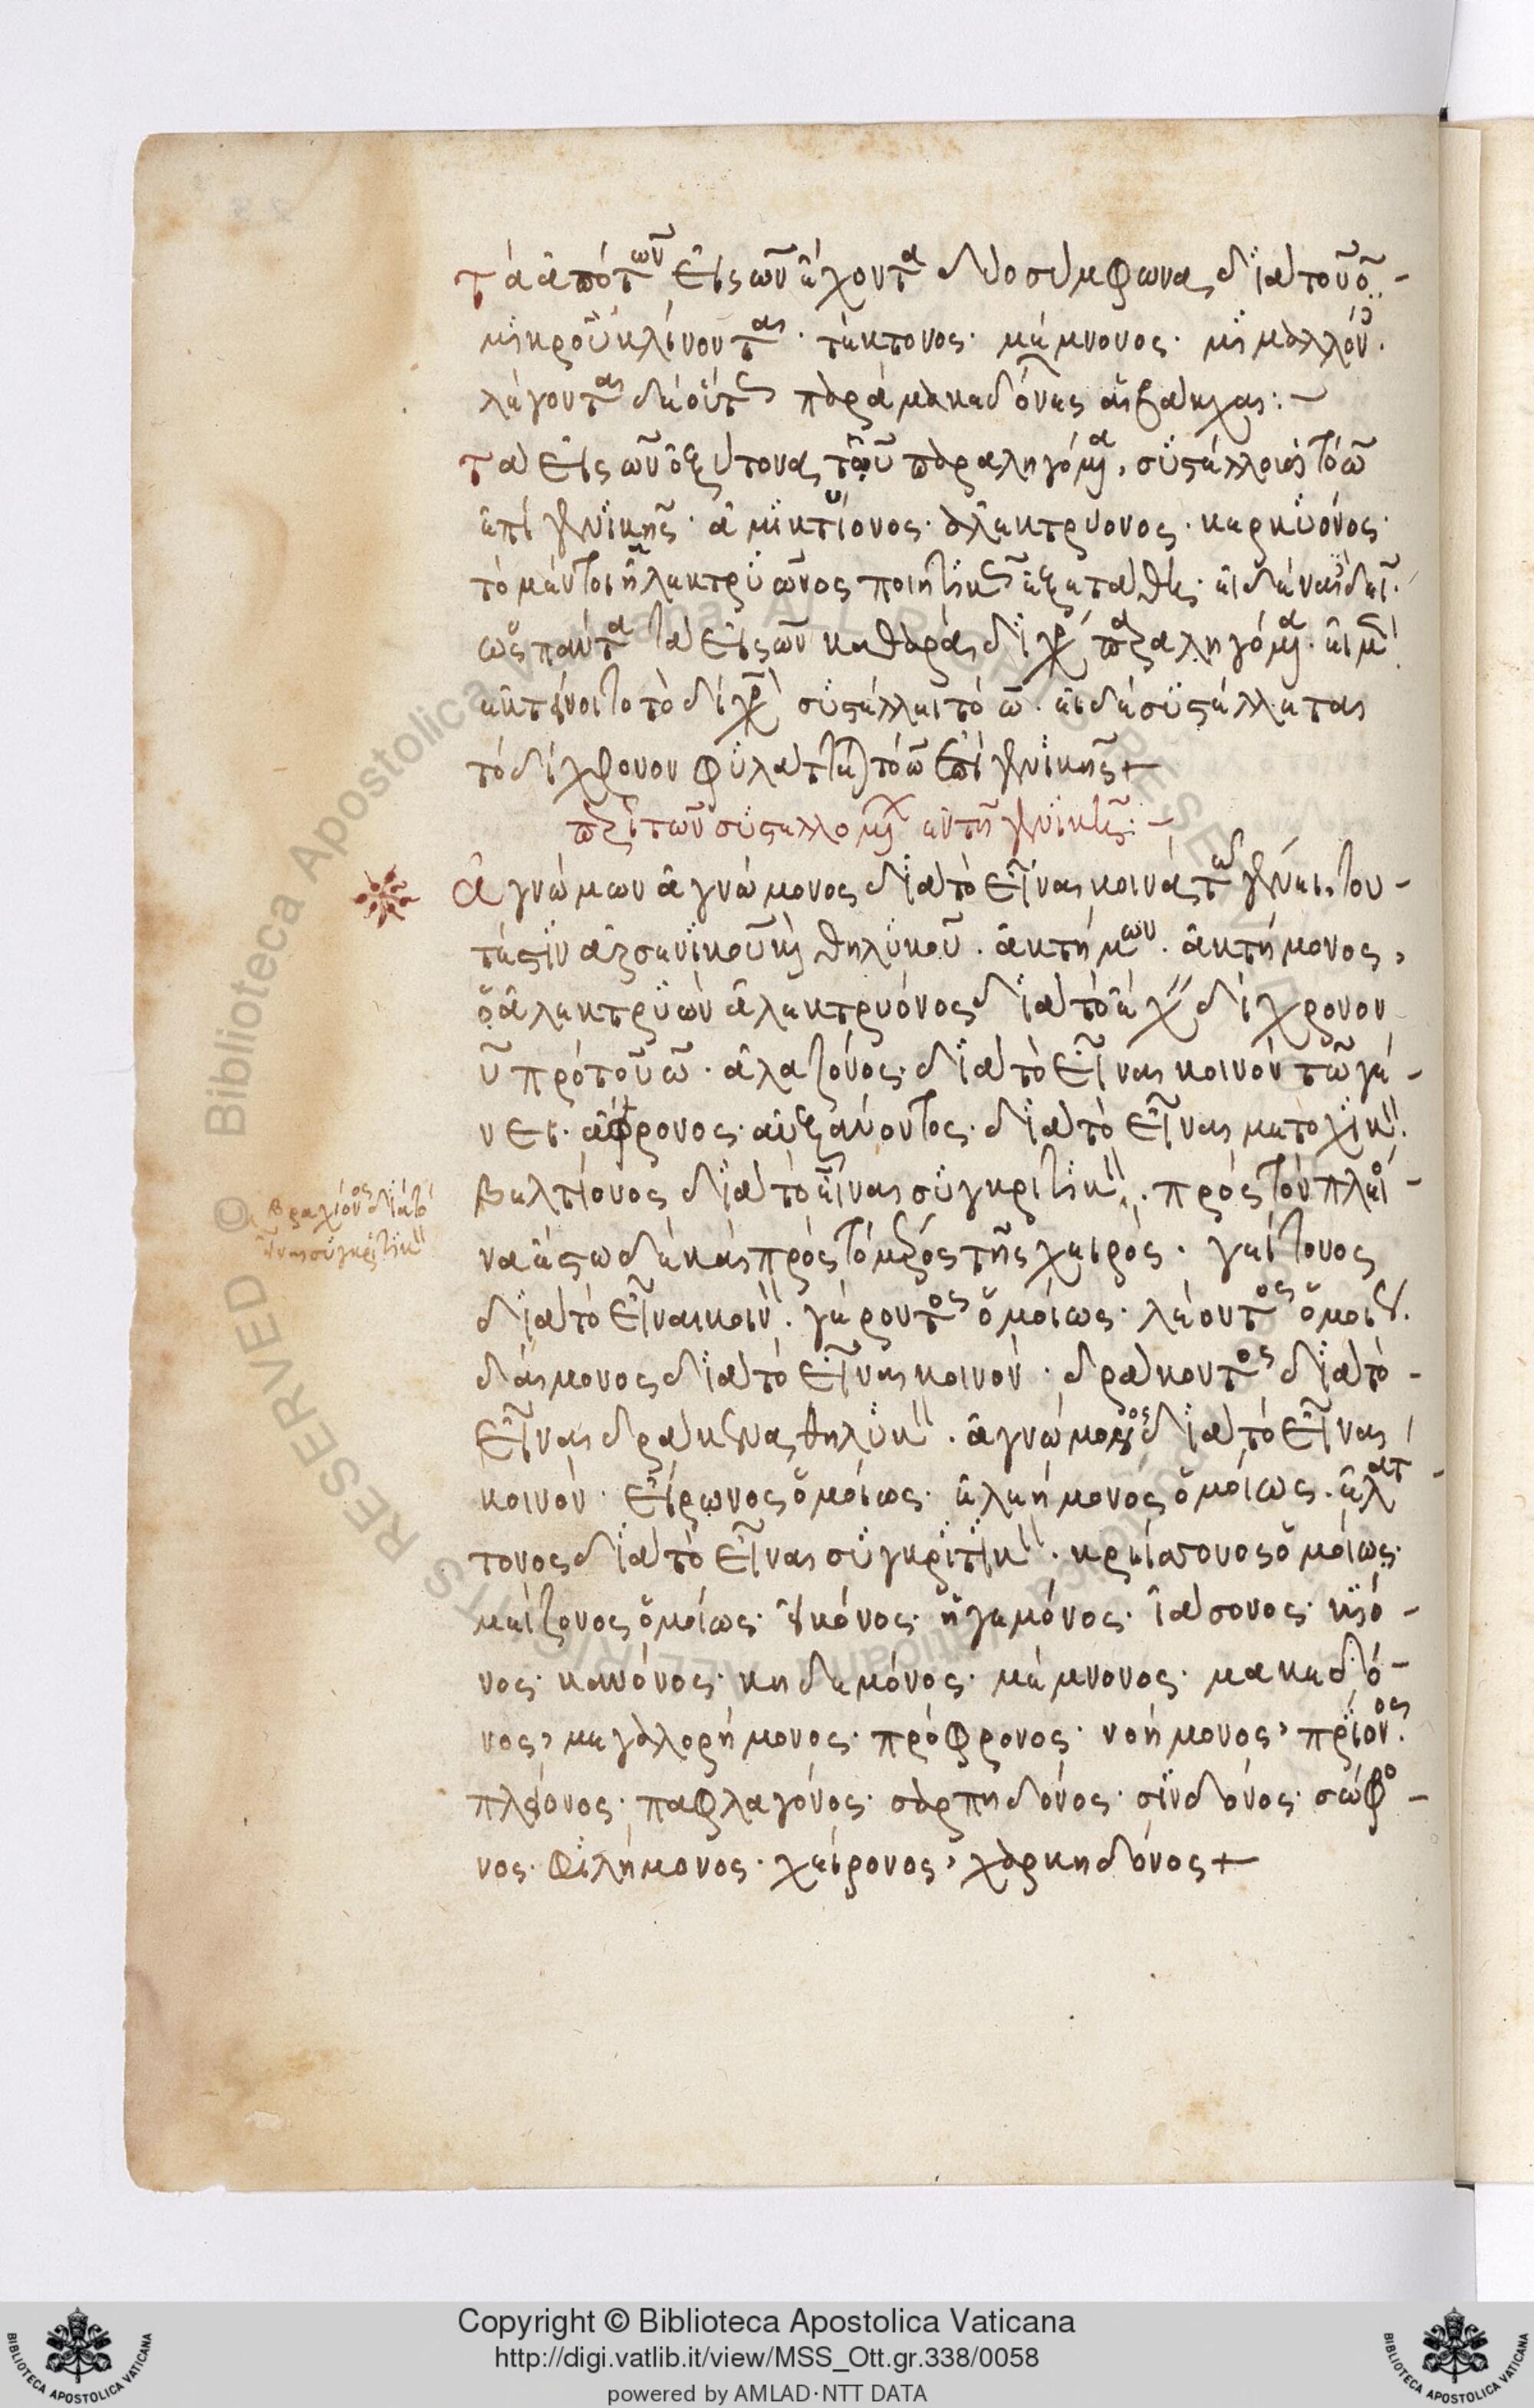 τὰ ἀπὸ τῶν εἰς ων ἔχοντα δύο σύμφωνα, διὰ τοῦ ο
μικροῦ κλίνονται· τέκτονος· μέμνονος· μιμαλλόν·
λέγονται δὲ οὕτως παρὰ μακεδόνες αἱ βάκχαι:
τὰ εἰς ων ὀξύτονα τῷ υ παραληγόμενα, συστέλλουσι τὸ ω
ἐπὶ γενικῆς· ἀμικτύονος· ἀλεκτρυονος· κερκυόνος·
τὸ μέντοι ἠλεκτρυῶνος ποιητικῶς ἐξετάθη· εἰδέναι δεῖ·
ὡς πάντα τὰ εἰς ων καθαρὰ διχρ παραληγόμενα· εἰ μὲν
ἐκτείνοιτο τὸ διχρ συστέλλει τὸ ω· εἰ δὲ συστέλλεται
τὸ δίχρονον φυλάττει τὸ ω ἐπὶ γενικῆς
περὶ τῶν συστελλομένων ἐν τῇ γενικῇ:
ἀγνώμων ἀγνώμονος διὰ τὸ εἶναι κοινὰ τῷ γένει, του
τέστιν ἀρσενικοῦ καὶ θηλυκοῦ· ἀκτήμων· ἀκτήμονος,
ὁ ἀλεκτρυὼν ἀλεκτρυόνος διὰ τὸ ἔχ δίχρονον
υ πρὸ τοῦ ω· ἀλαζόνος· διὰ τὸ εἶναι κοινὸν τῷ γέ
νει· ἄφρονος· αὐξάνοντος· διὰ τὸ εἶναι μετοχικ·
βελτίονος διὰ τὸ εἶναι συγκριτικ· πρὸς τὸν πλεί
να ἔστω δὲ καὶ πρὸς τὸ μέρος τῆς χειρός· γείτονος
διὰ τὸ εἶναι κοιν· γέροντος ὁμοίως· λέοντος ὁμοί·
δαίμονος διὰ τὸ εἶναι κοινόν· δράκοντος διὰ τὸ
εἶναι δράκαινα θηλυκ· ἀγνώμονος διὰ τὸ εἶναι
κοινόν· εἴρωνος ὁμοίως· ἐλεήμονος ὁμοίως· ἐλατ
τονος διὰ τὸ εἶναι συγκριτικ· κρείσσονος ὁμοίως·
μείζονος ὁμοίως· εἰκόνος· ἡγεμόνος· ἰάσονος· κιό
νος· κανόνος· κηδεμόνος· μέμνονος· μακεδό
νος, μεγαλορήμονος· πρόφρονος· νοήμονος, πρίονος·
πλείονος· παφλαγόνος· σαρπηδόνος· σινδόνος· σώφρο
νος· φιλήμονος· χείρονος, χαρκηδόνος
βραχίονος διὰ τὸ
εἶναι συγκριτικ
Copyright © Biblioteca Apostolica Vaticana
http://digi.vatlib.it/view/MSS_Ott.gr.338/0058
powered by AMLAD·NTT DATA